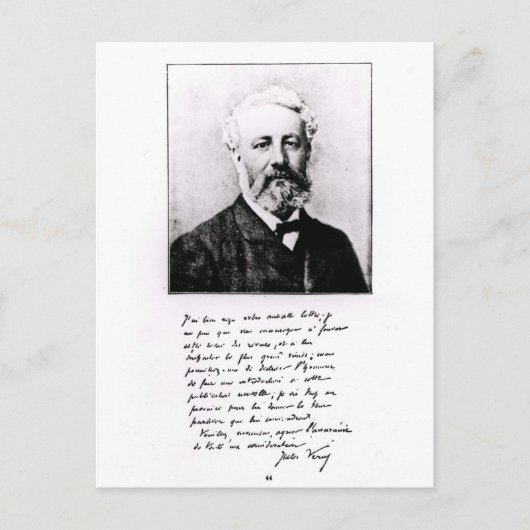 J'ai bien reçu votre aimable lettre, je
ne puis que vous encourager à fonder
cette revue des revues, et à lui
souhaiter le plus grand succès ; mais
permettez-moi de décliner l'honneur
de faire une introduction à cette
publication nouvelle ; je suis trop en
pour lui donner le
qui lui conviendrait
Veuillez, monsieur, agréer l'assurance
de toute ma considération
Jules Verne
44